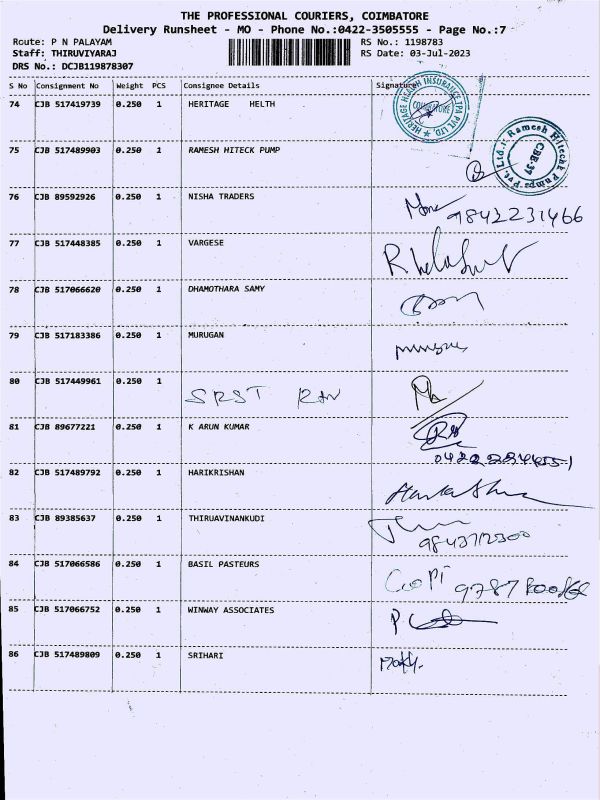 THE PROFESSIONAL COURIERS, COIMBATORE
Delivery Runsheet - MO - Phone No.:0422-3505555 - Page No.:7
Route: P N PALAYAM RS No.: 1198783
Staff: THIRUVIYARAJ RS Date: 03-Jul-2023
DRS No.: DCJB119878307
S No Consignment No Weight PCS Consignee Details Signature
74 CJB 517419739 0.250 1 HERITAGE HELTH
HERITAGE HEALTH INSURANCE TPA PVT. LTD.
COIMBATORE
75 CJB 517489903 0.250 1 RAMESH HITECK PUMP
Ramesh Hiteck Pumps Pvt. Ltd.
CBE-37
76 CJB 89592926 0.250 1 NISHA TRADERS
9842231466
77 CJB 517448385 0.250 1 VARGESE
78 CJB 517066620 0.250 1 DHAMOTHARA SAMY
79 CJB 517183386 0.250 1 MURUGAN
80 CJB 517449961 0.250 1 SRST
81 CJB 89677221 0.250 1 K ARUN KUMAR
82 CJB 517489792 0.250 1 HARIKRISHAN
83 CJB 89385637 0.250 1 THIRUAVINANKUDI
84 CJB 517066586 0.250 1 BASIL PASTEURS
GOPI
85 CJB 517066752 0.250 1 WINWAY ASSOCIATES
86 CJB 517489809 0.250 1 SRIHARI